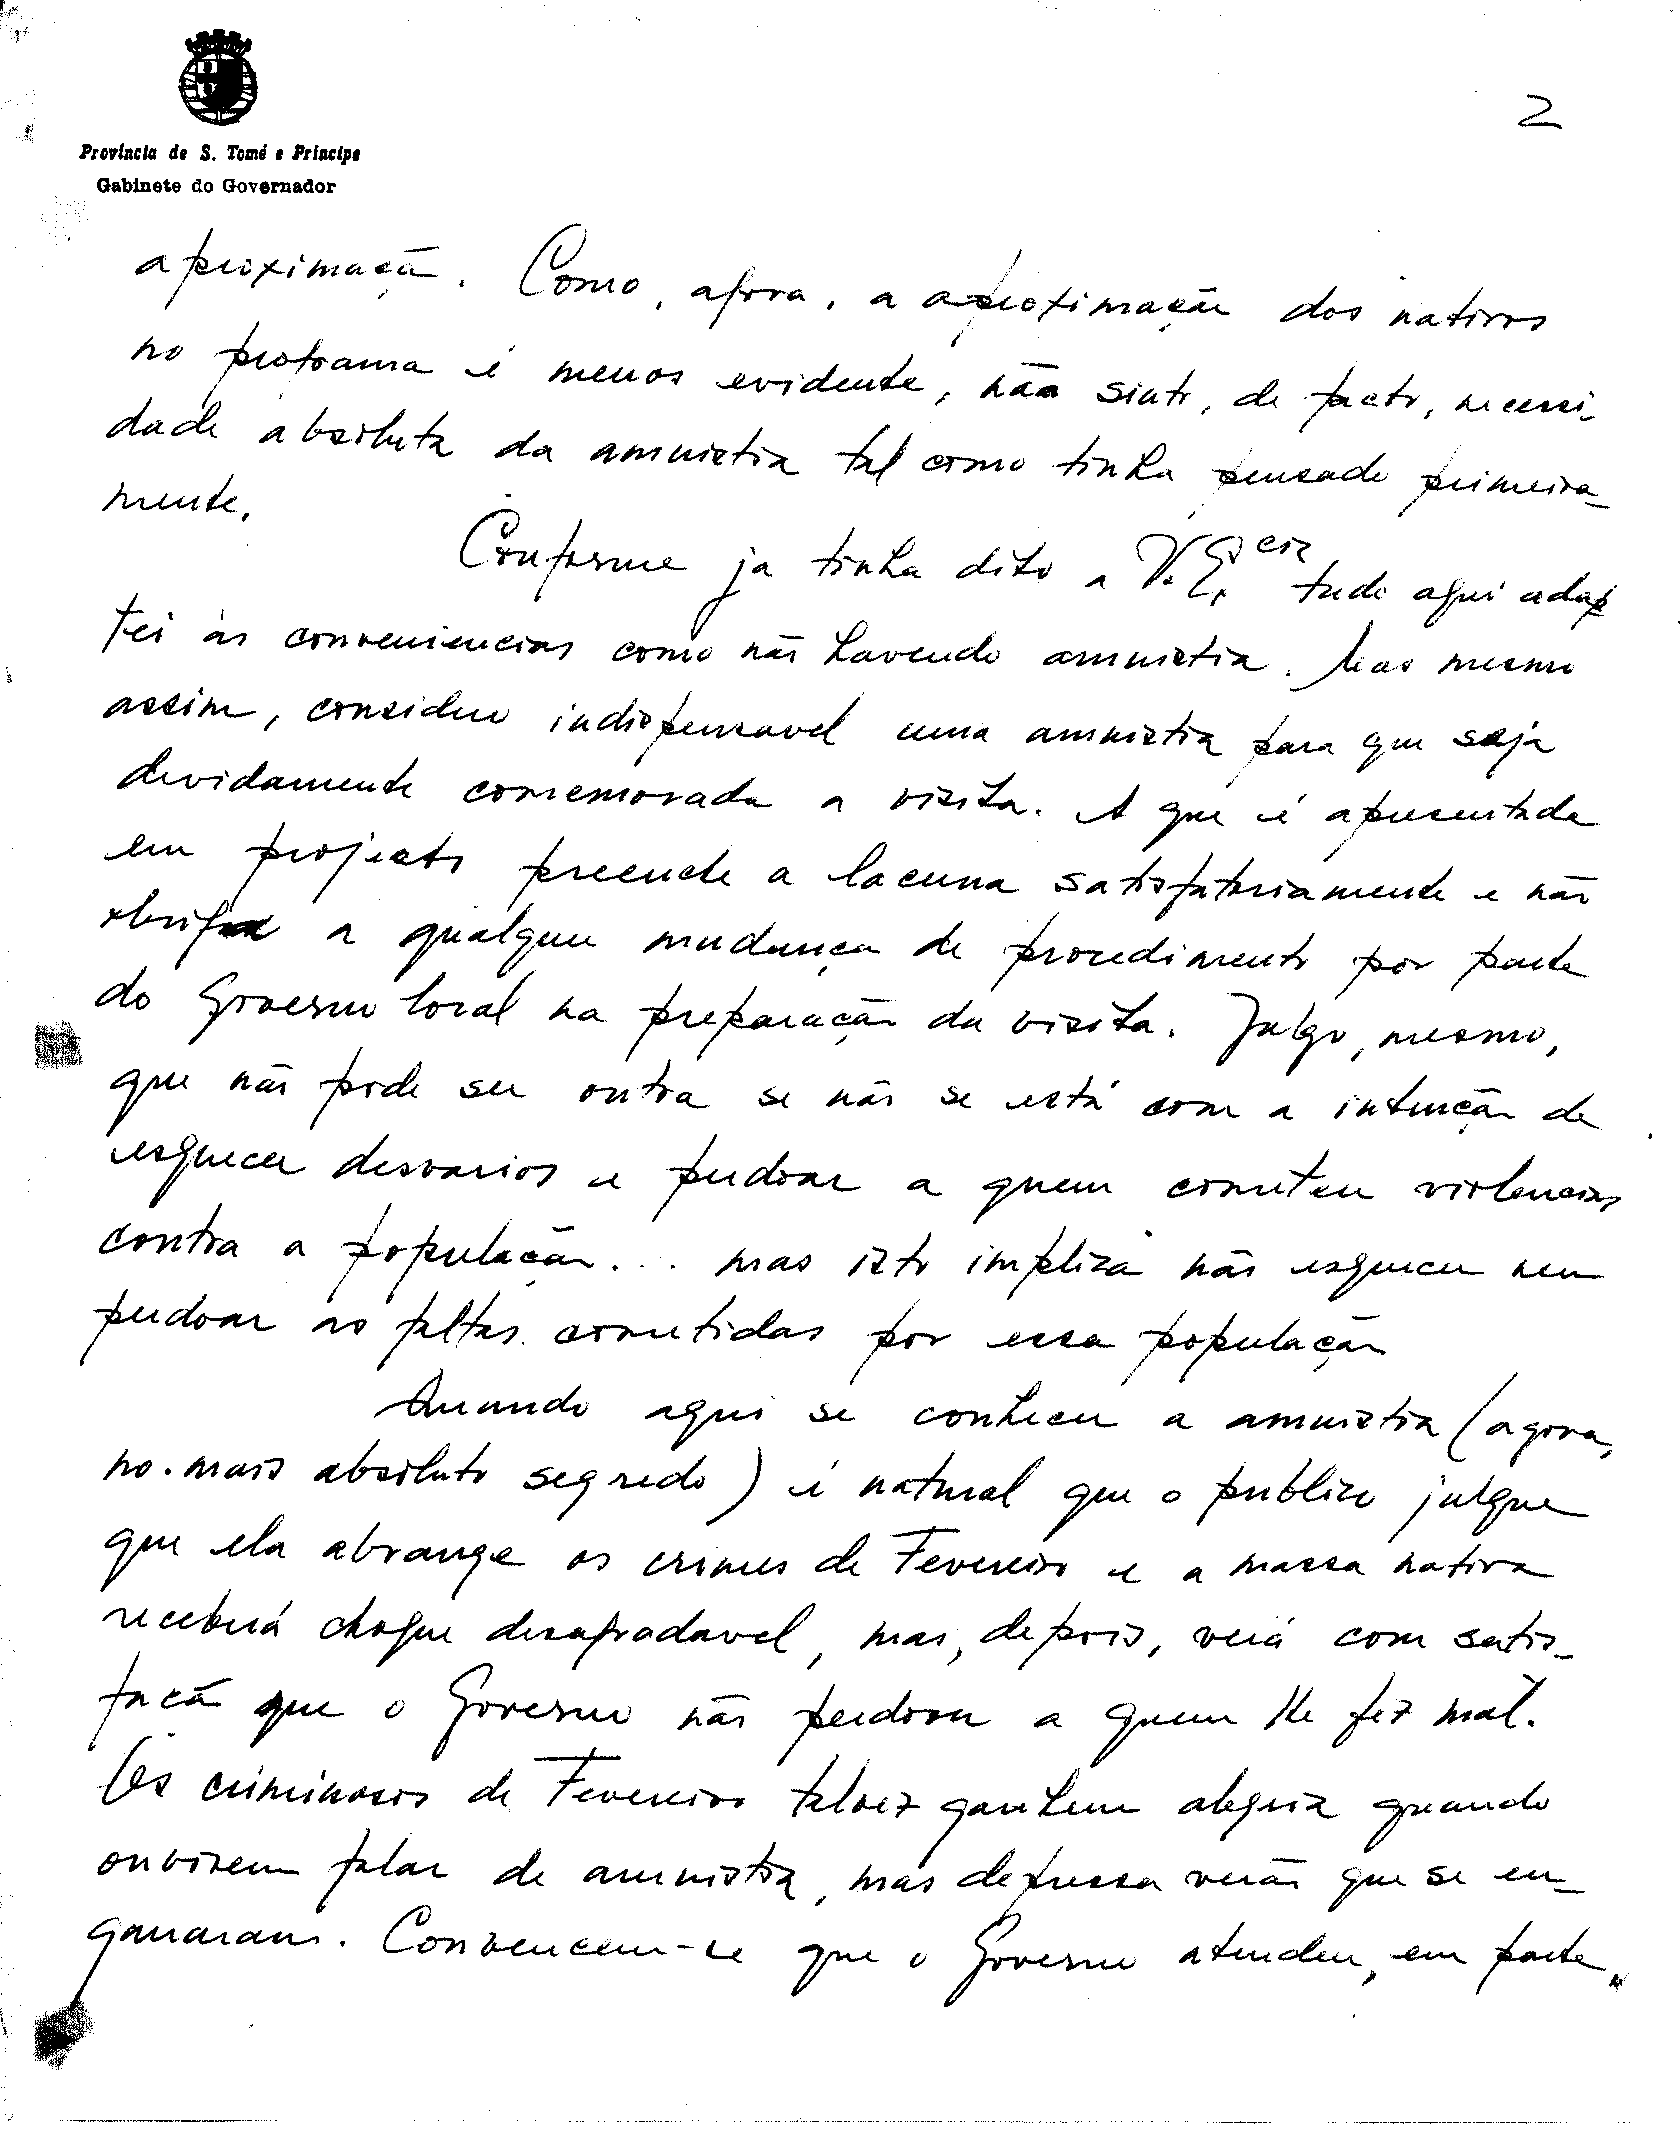 2
Província de S. Tomé e Príncipe
Gabinete do Governador
aproximação. Como, agora, a aproximação dos nativos
no programa é menos evidente, não sinto, de facto, necessi-
dade absoluta da amnistia tal como tinha pensado primeira-
mente.
Conforme ja tinha dito a V. Ex.cia tudo aqui adap
tei às conveniencias como não havendo amnistia. Mas mesmo
assim, considero indispensavel uma amnistia para que seja
devidamente comemorada a visita. A que é apresentada
em projecto preenche a lacuna satisfatoriamente e não
obriga a qualquer mudança de procedimento por parte
do Governo local na preparação da visita. Julgo, mesmo,
que não pode ser outra se não se está com a intenção de
esquecer desvarios e perdoar a quem cometeu violencias
contra a população... mas isto implica não esquecer nem
perdoar as faltas cometidas por essa população
Quando aqui se conhecer a amnistia (agora,
no mais absoluto segredo) é natural que o publico julgue
que ela abrange os crimes de Fevereiro e a massa nativa
receberá choque desagradavel, mas, depois, verá com satis-
fação que o Governo não perdoou a quem lhe fez mal.
Os criminosos de Fevereiro talvez ganhem alegria quando
ouvirem falar de amnistia, mas depressa verão que se en-
ganaram. Convencem-se que o Governo atendeu, em parte,